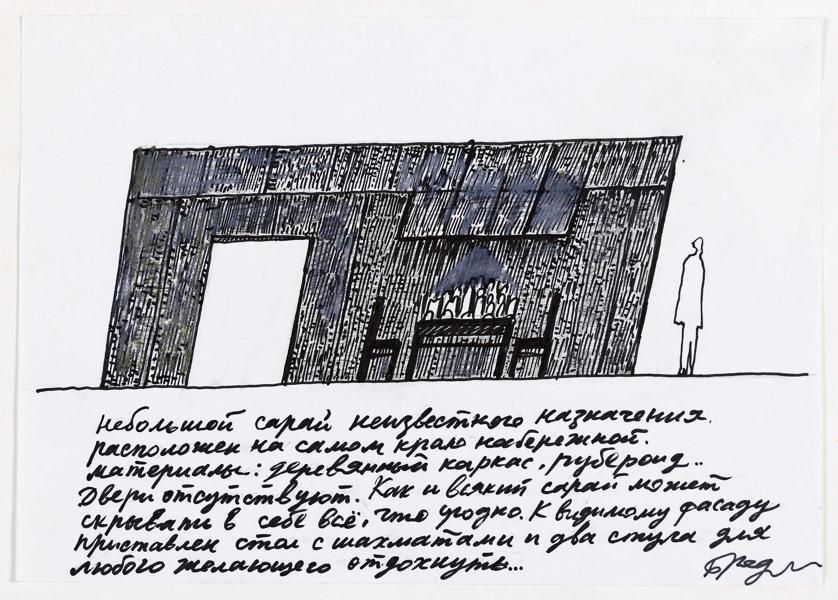 небольшой сарай неизвестного назначения.
расположен на самом краю набережной.
материалы: деревянный каркас, рубероид..
Двери отсутствуют. Как и всякий сарай может
скрывати в себе всё, что угодно. К видимому фасаду
приставлен стол с шахматами и два стула для
любого желающего отдохнуть...